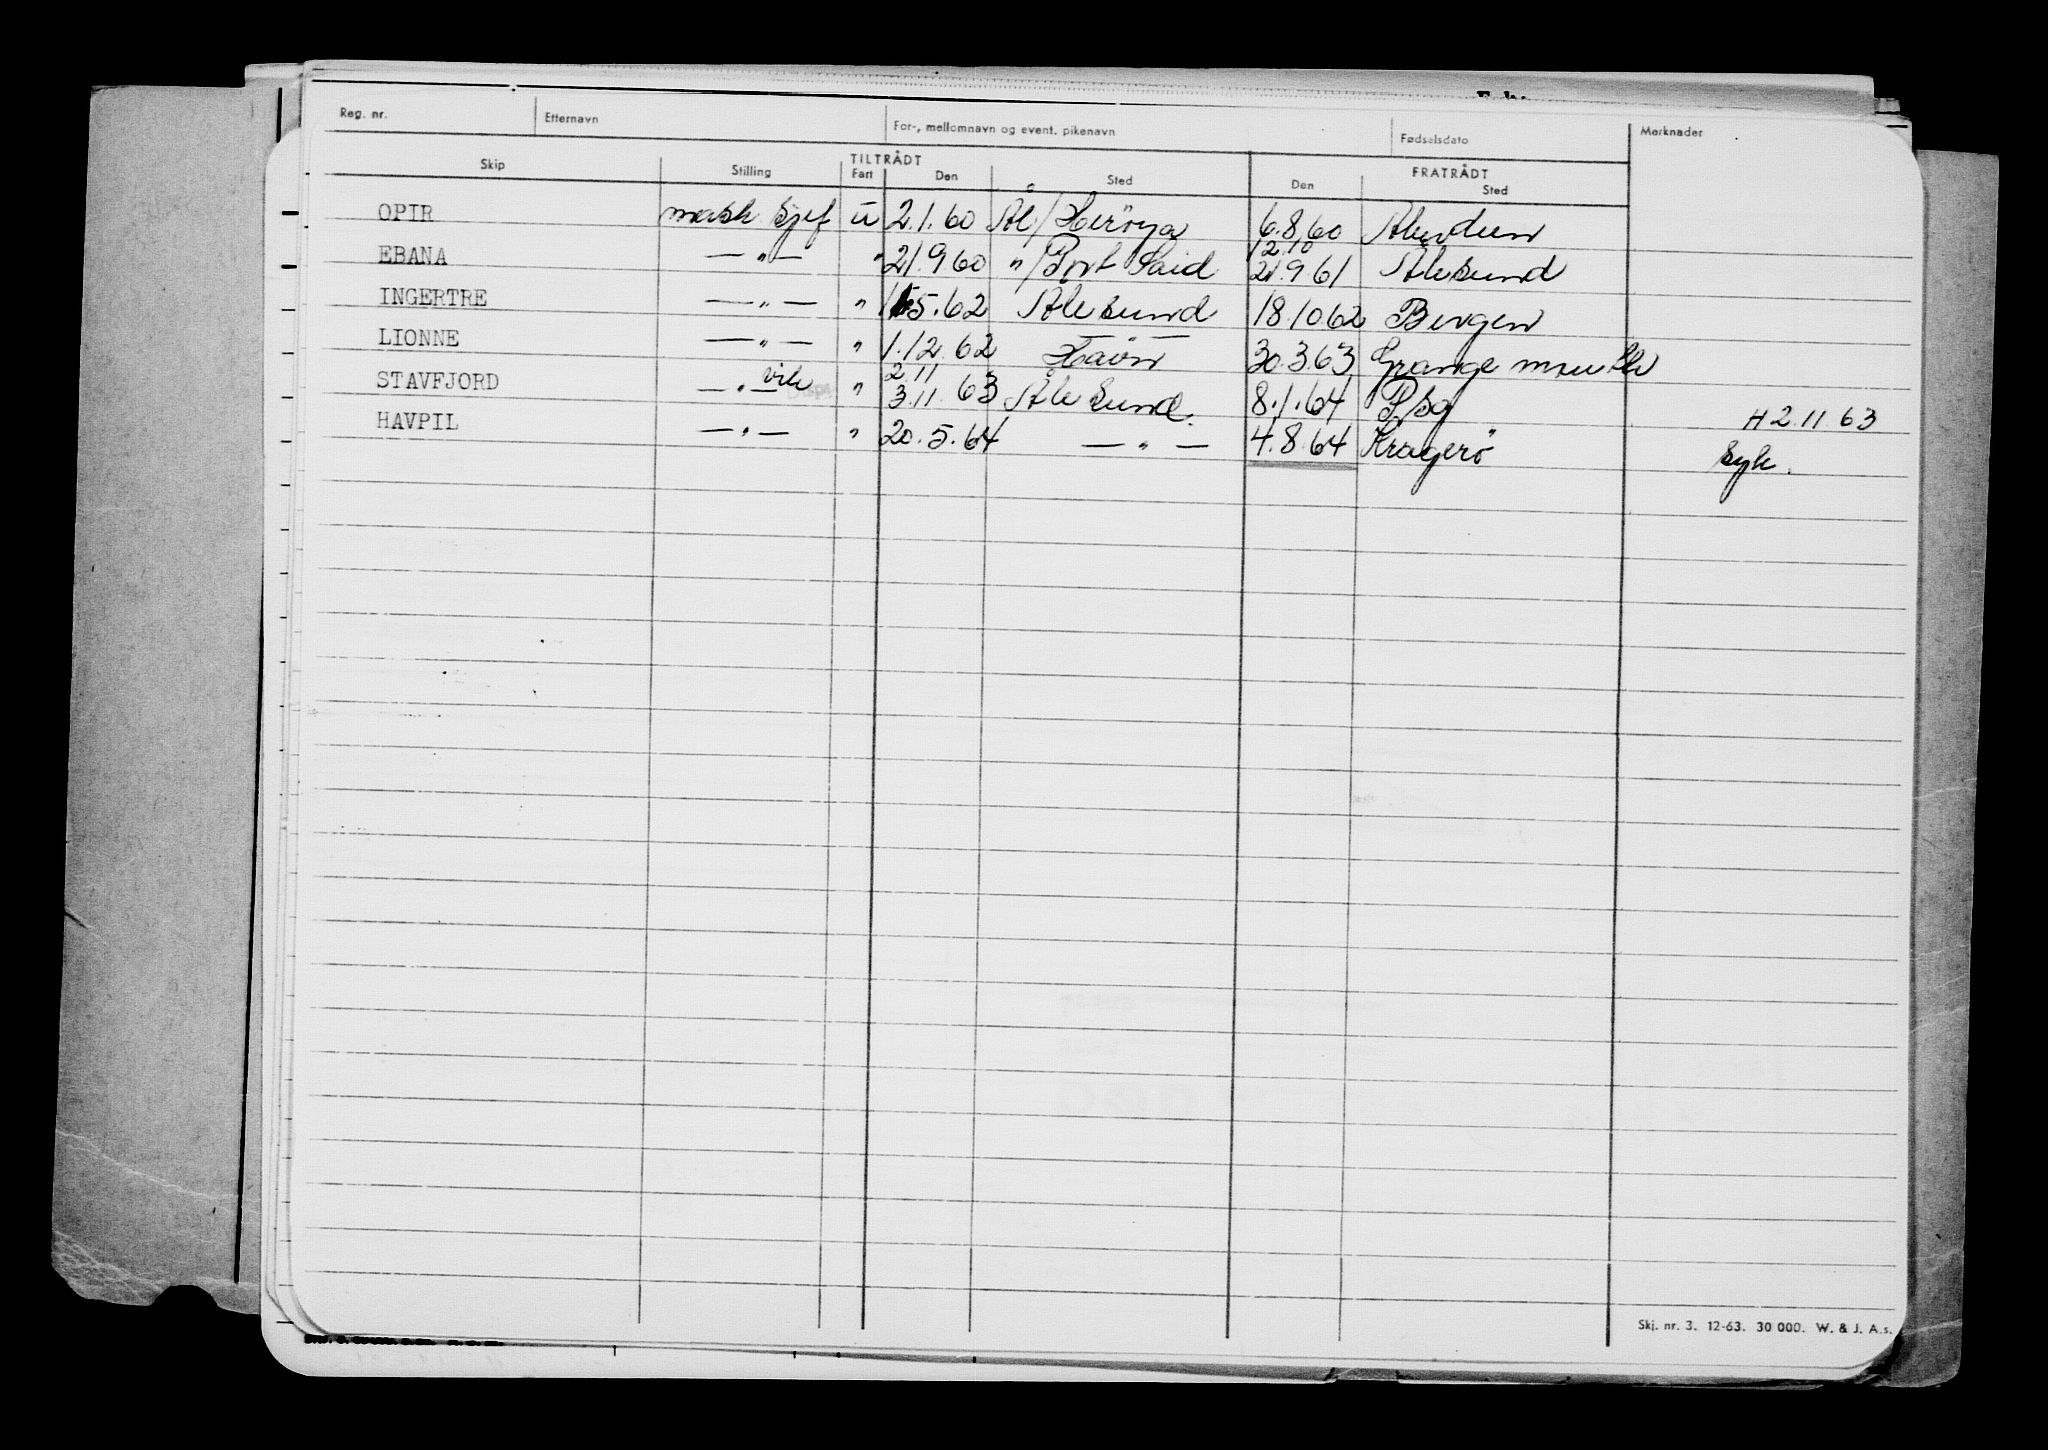 Reg. nr. Etternavn For-, mellomnavn og event. pikenavn Fødselsdato Merknader
TILTRÅDT FRATRÅDT
Skip Stilling Fart Den Sted Den Sted
OPIR mask sjef u 2.1.60 Ål/Herøya 6.8.60 Aberdeen
12.10
EBANA — " — " 21.9.60 "/Port Said 21.9 61 Ålesund
INGERTRE — " — " 5.62 Ålesund 18.10 62 Bergen
LIONNE — " — " 1.12.62 Havn 30.3.63 Grange mouth
vik 2.11
STAVFJORD — " — " 3.11.63 Ålesund. 8.1.64 P/sg H 2.11 63
HAVPIL — " — " 20.5.64 — " — 4.8.64 Kragerö Syk.
Skj. nr. 3. 12-63. 30 000. W. & J. A.s.